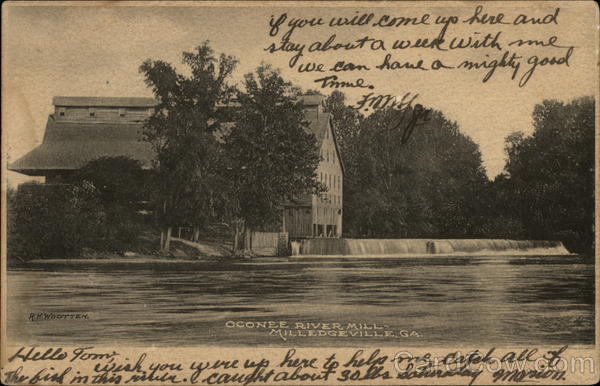 if you will come up here and
stay about a week with me
we can have a mighty good
time.
F. Mill Jr
R.H. WOOTTEN.
OCONEE RIVER MILL-
MILLEDGEVILLE, GA.
Hello Tom,
wish you were up here to help me catch all of
the fish in this river. I caught about 30 lbs Saturday Marion
CardCow.com